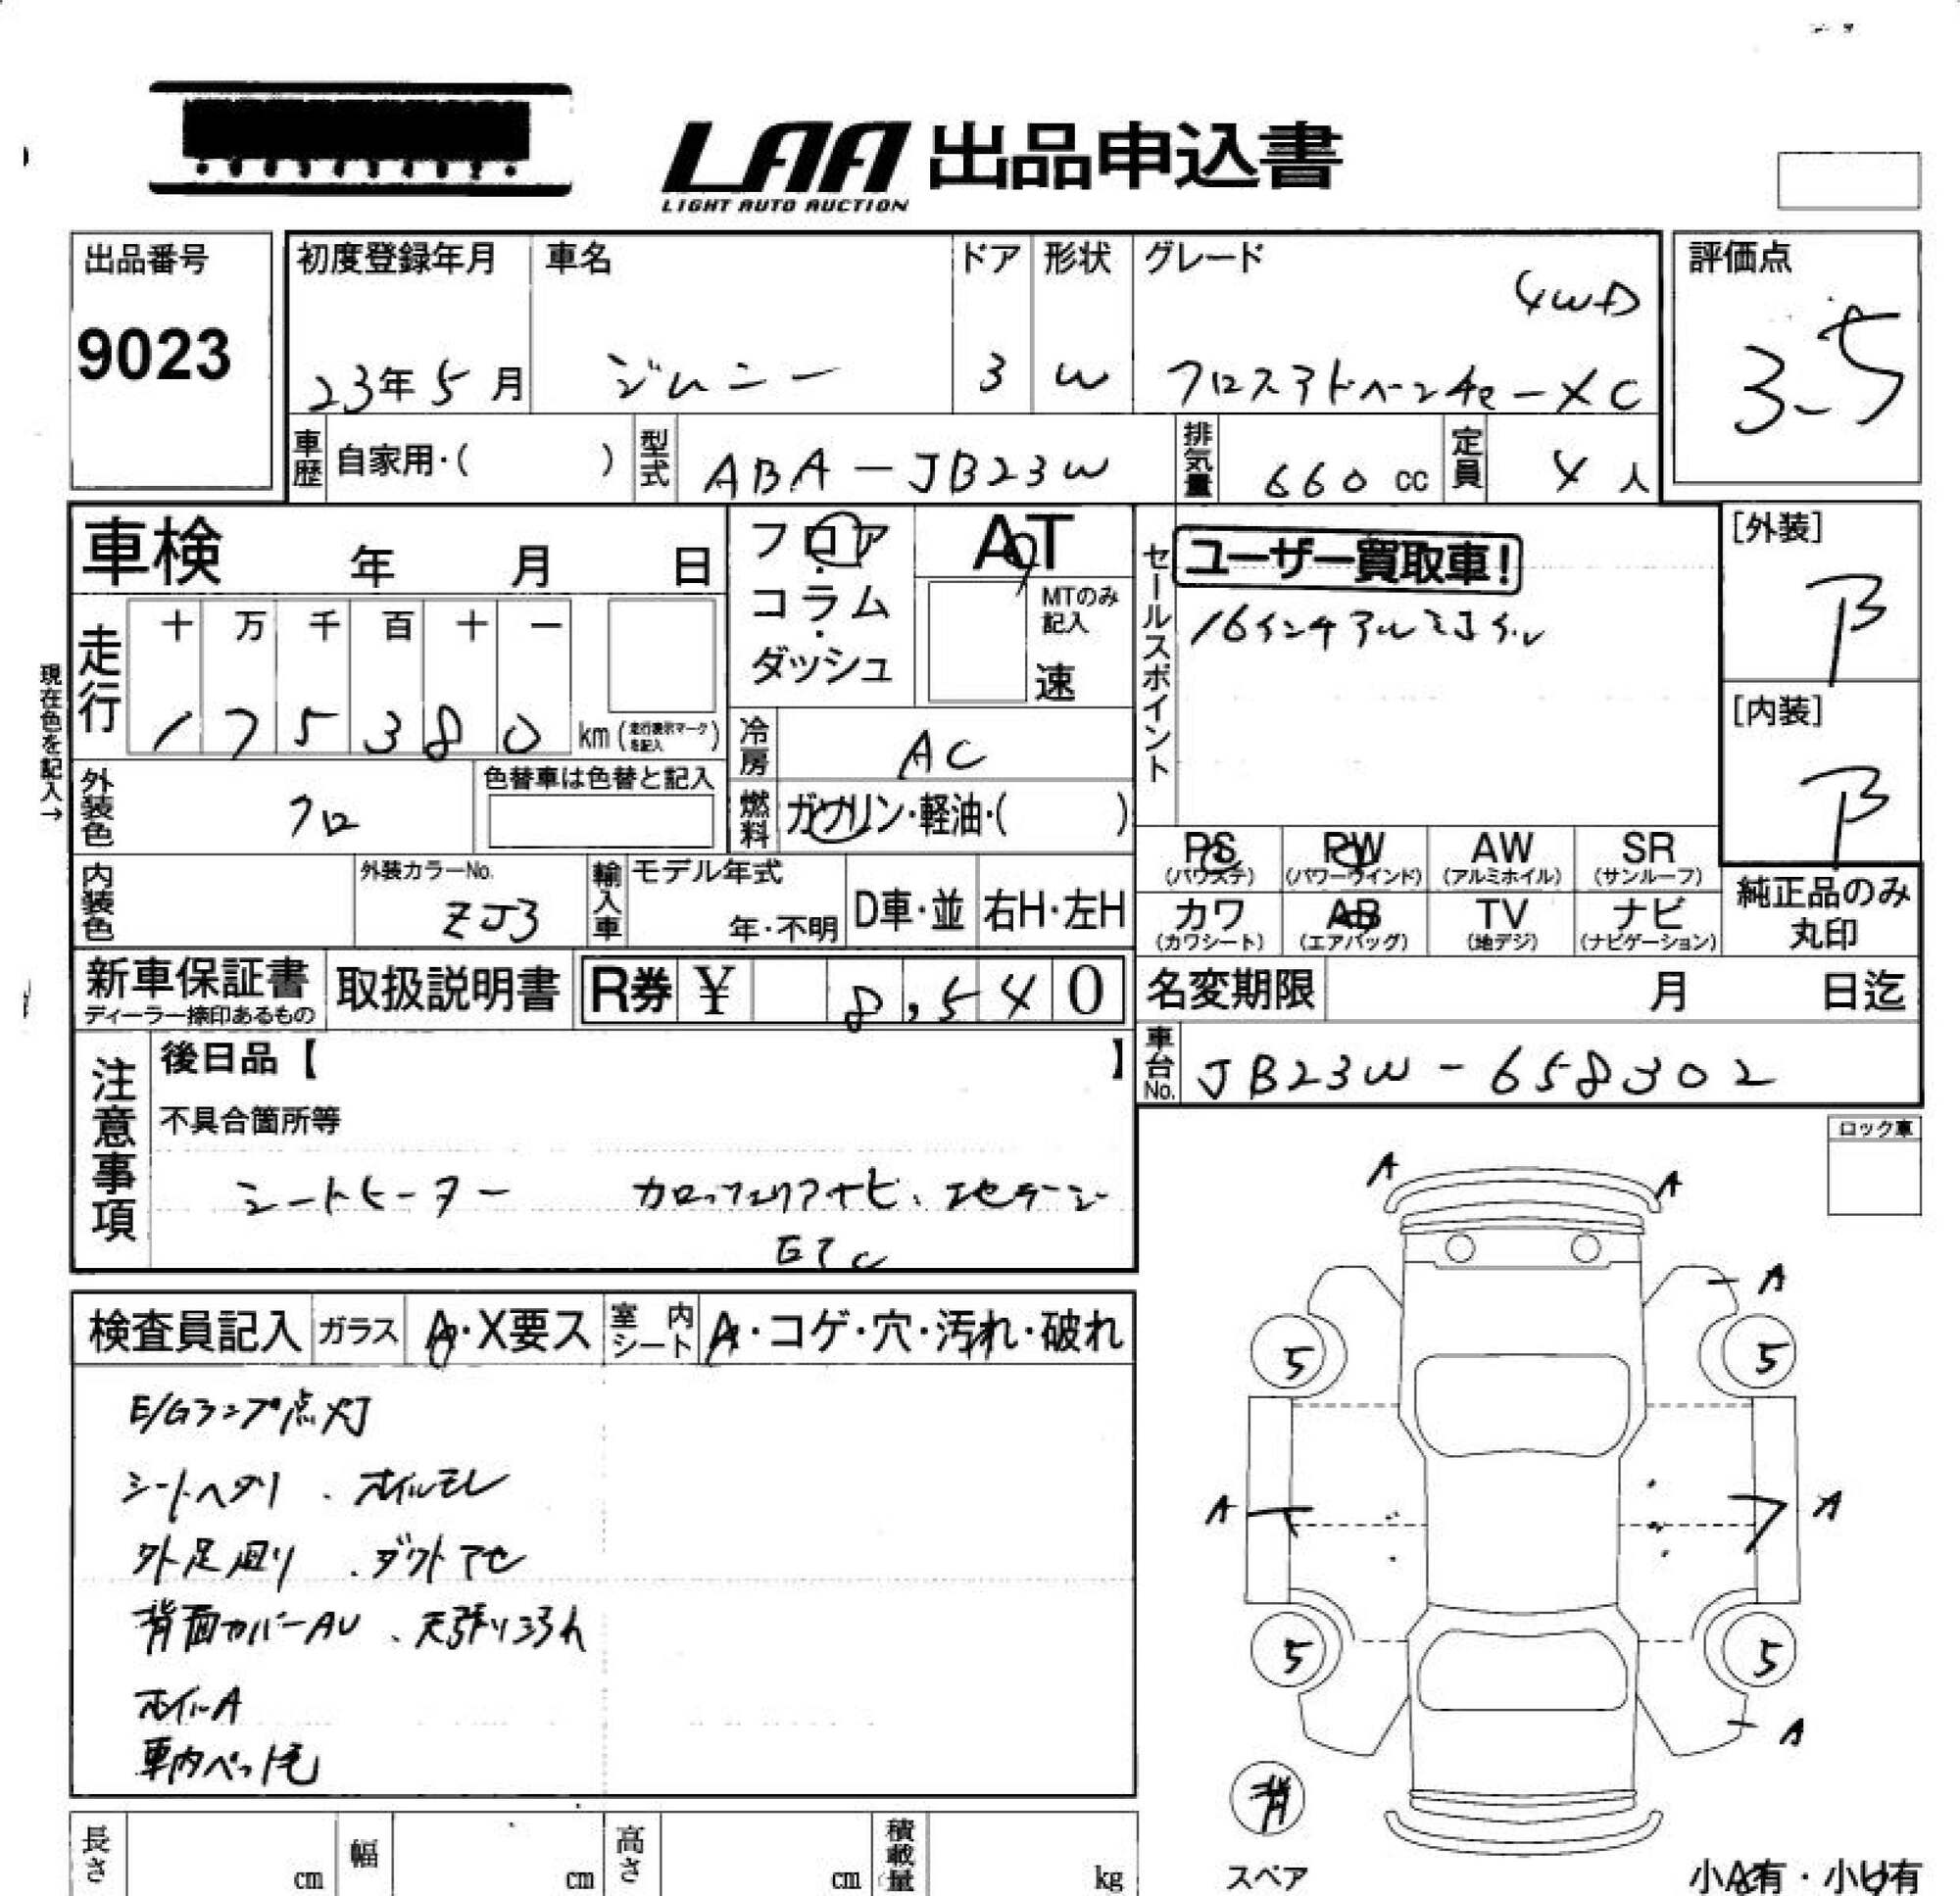 LAA 出品申込書
LIGHT AUTO AUCTION
出品番号
9023
初度登録年月
23年5月
車名
ジムニー
ドア
3
形状
W
グレード
4WD
クロスアドベンチャーXC
評価点
3.5
車歴
自家用・( )
型式
ABA-JB23W
排気量
660 cc
定員
4人
車検 年 月 日
走行
十 万 千 百 十 一
1 7 5 3 8 0 km (走行表示マークを記入)
現在色を記入→
外装色
クロ
色替車は色替と記入
内装色
外装カラーNo.
ZJ3
フロア・コラム・ダッシュ
AT
MTのみ記入
速
冷房
AC
燃料
ガソリン・軽油・( )
輸入車
モデル年式
年・不明
D車・並
右H・左H
セールスポイント
ユーザー買取車!
16インチアルミホイル
[外装]
B
[内装]
B
PS (パワステ)
PW (パワーウインド)
AW (アルミホイル)
SR (サンルーフ)
カワ (カワシート)
AB (エアバッグ)
TV (地デジ)
ナビ (ナビゲーション)
純正品のみ丸印
新車保証書
ディーラー捺印あるもの
取扱説明書
R券 ¥ 8,540
名変期限 月 日迄
車台No.
JB23W-658302
注意事項
後日品【 】
不具合箇所等
シートヒーター カロッツェリアナビ、エセラージ
ETC
ロック車
検査員記入
ガラス
A・X要ス
室内シート
A・コゲ・穴・汚れ・破れ
E/Gランプ点灯
シートヘタリ、オイルモレ
外足廻り、ダクトアセ
背面カバーAU、天張りヨゴレ
ホイルA
車内ペット毛
A A
A
5 5
A A
5 5
A
背
スペア
小A有・小U有
長さ cm
幅 cm
高さ cm
積載量 kg